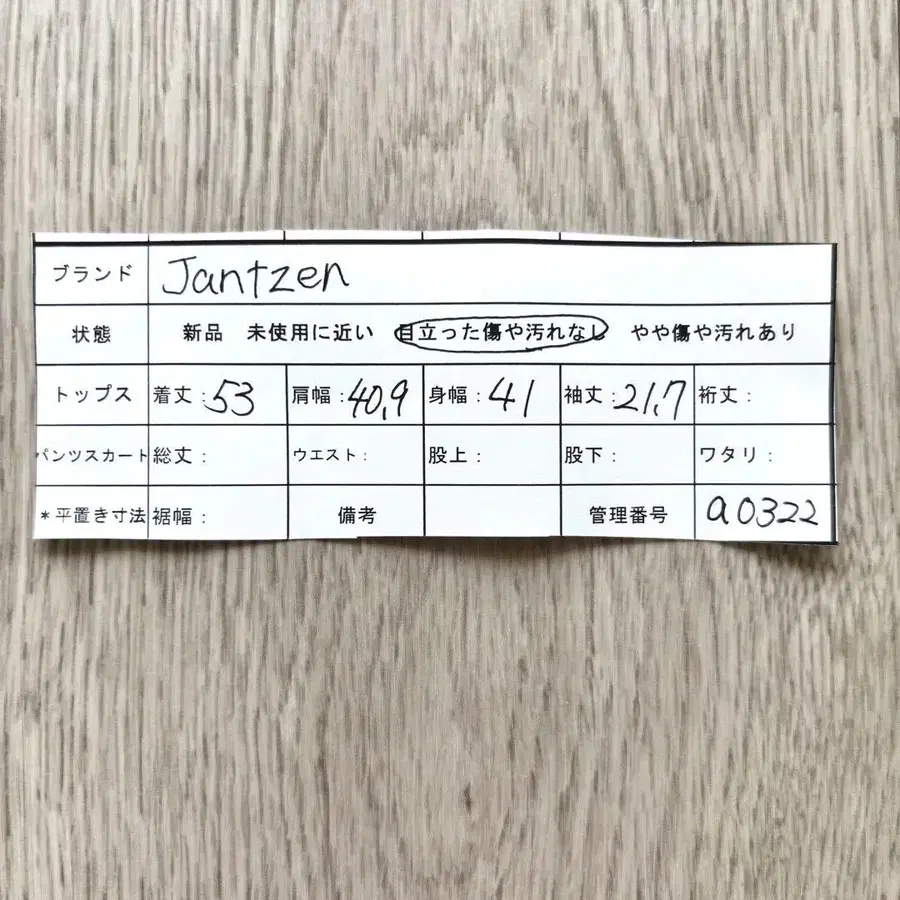 ブランド Jantzen
状態 新品 未使用に近い 目立った傷や汚れなし やや傷や汚れあり
トップス 着丈:53 肩幅:40,9 身幅:41 袖丈:21,7 裄丈:
パンツスカート 総丈: ウエスト: 股上: 股下: ワタリ:
*平置き寸法 裾幅: 備考 管理番号 a0322